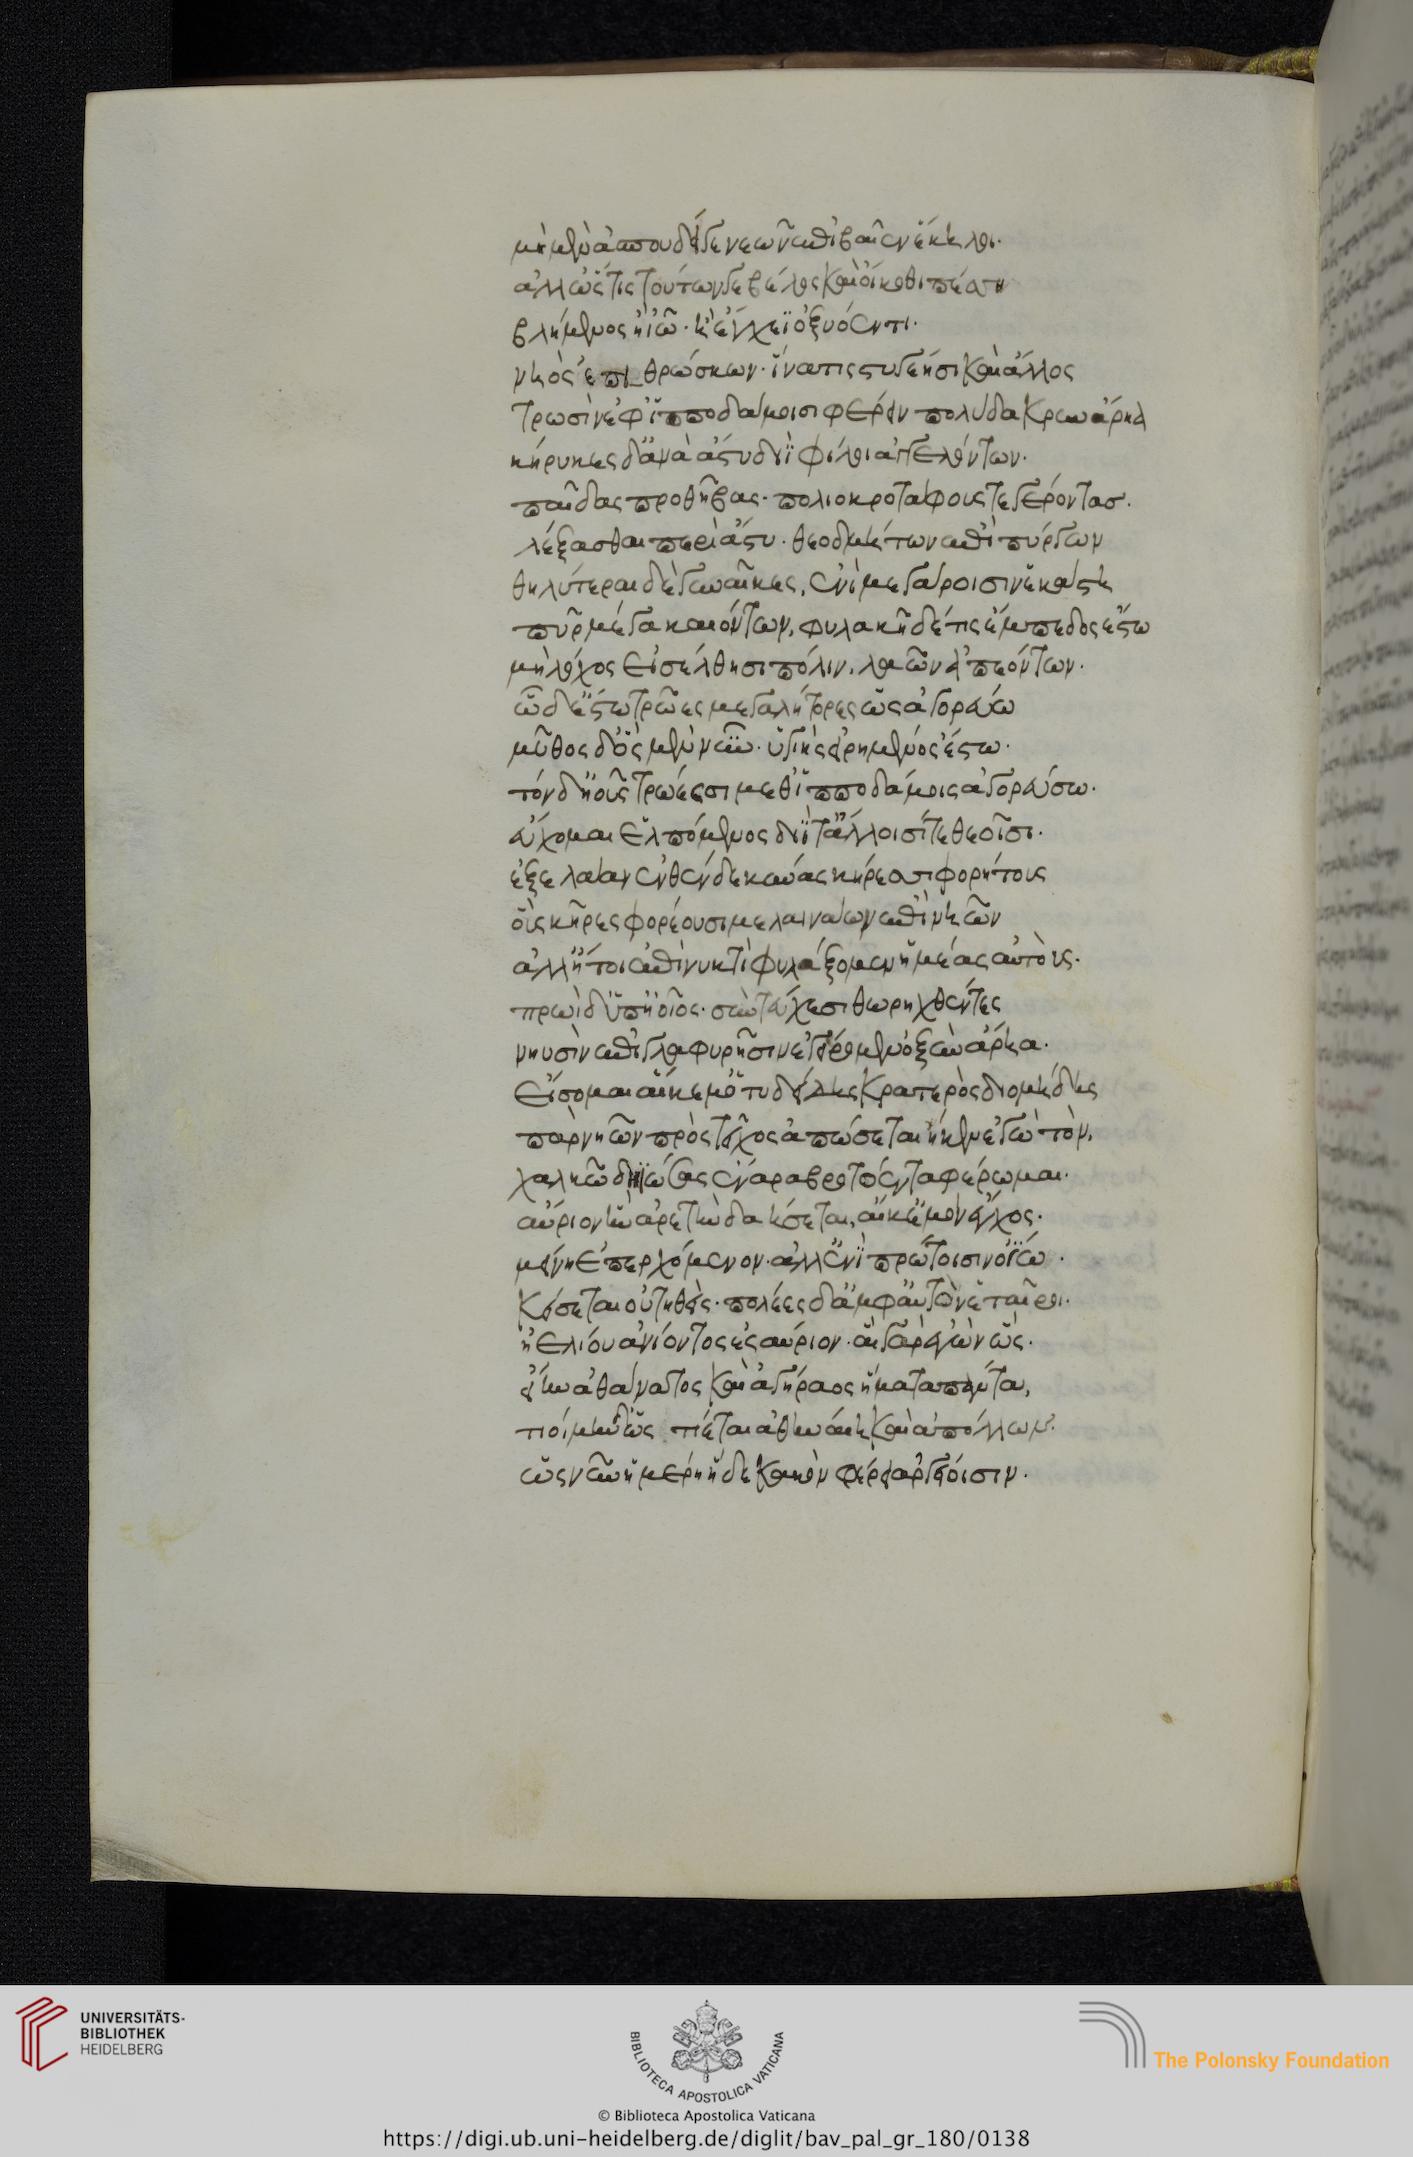 μὴ μὲν ἀσπουδεί γε νεῶν ἐπιβαῖεν ἕκηλοι.
ἀλλ' ὥς τις τούτων γε βέλος καὶ οἴκοθι πέσση
βλήμενος ἢ ἰῶ. ἢ ἔγχεϊ ὀξυόεντι.
νηὸς ἐπιθρώσκων. ἵνα τις στυγέησι καὶ ἄλλος
τρωσὶν ἐφ' ἱπποδάμοισι φέρειν πολύδακρυν ἄρηα
κήρυκες δ' ἀνὰ ἄστυ διῒ φίλοι ἀγγελόντων.
παῖδας προθήβας. πολιοκροτάφους τε γέροντασ.
λέξασθαι περὶ ἄστυ. θεοδμήτων ἐπὶ πύργων
θηλύτεραι δὲ γυναῖκες, ἐνὶ μεγάροισιν ἑκάστη
πῦρ μέγα καιόντων, φυλακὴ δέ τις ἔμπεδος ἔστω
μὴ λόχος εἰσέλθησι πόλιν, λαῶν ἀπεόντων.
ὧδ' ἔστω τρῶες μεγαλήτορες ὡς ἀγορεύω
μῦθος δ' ὃς μὲν νῦν. ὑγιὴς εἰρημένος ἔστω.
τὸν δ' ἠοῦς τρώεσσι μεθ' ἱπποδάμοις ἀγορεύσω.
εὔχομαι ἐλπόμενος διΐ τ' ἄλλοισί τε θεοῖσι.
ἐξελάαν ἐνθένδε κύνας κηρεσσιφορήτους
οὓς κῆρες φορέουσι μελαινάων ἐπὶ νηῶν
ἀλλ' ἤτοι ἐπὶ νυκτὶ φυλάξομεν ἡμέας αὐτούς.
πρωῒ δ' ὑπηοῖοι. σὺν τεύχεσι θωρηχθέντες
νηυσὶν ἐπὶ γλαφυρῆσιν ἐγείρομεν ὀξὺν ἄρηα.
εἴσομαι αἴ κε μ' ὁ τυδείδης κρατερὸς διομήδης
πὰρ νηῶν πρὸς τεῖχος ἀπώσεται ἤ κεν ἐγὼ τὸν,
χαλκῶ δηϊώσας ἔναρα βροτόεντα φέρωμαι.
αὔριον ἣν ἀρετὴν διαείσεται, αἴ κ' ἐμὸν ἔγχος.
μείνη ἐπερχόμενον. ἀλλ' ἐνὶ πρώτοισιν ὀΐω.
κείσεται οὐτηθείς. πολέες δ' ἀμφ' αὐτὸν ἑταῖροι.
ἠελίου ἀνιόντος ἐς αὔριον. αἲ γὰρ ἐγὼν ὣς.
εἴην ἀθάνατος καὶ ἀγήραος ἤματα πάντα,
τιοίμην δ' ὡς τίεται ἀθηναίη καὶ ἀπόλλων.
ὡς νῦν ἡμέρη ἥδε κακὸν φέρει ἀργείοισιν.
UNIVERSITÄTS-
BIBLIOTHEK
HEIDELBERG
BIBLIOTECA APOSTOLICA VATICANA
The Polonsky Foundation
© Biblioteca Apostolica Vaticana
https://digi.ub.uni-heidelberg.de/diglit/bav_pal_gr_180/0138